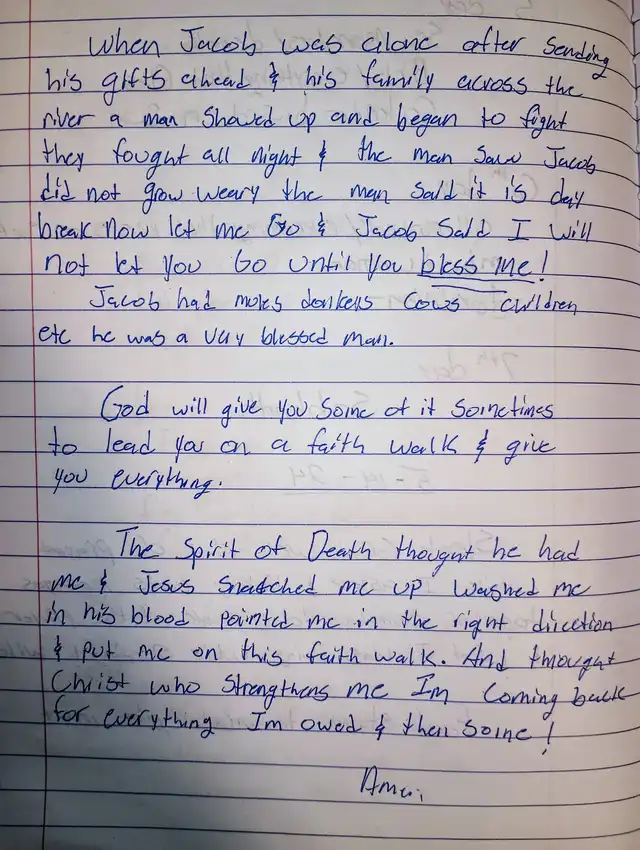 When Jacob was alone after sending
his gifts ahead & his family across the
river a man Showed up and began to fight
they fought all night & the man saw Jacob
did not grow weary the man said it is day
break now let me Go & Jacob Said I will
not let you Go until you bless me!
Jacob had mules donkeys Cows children
etc he was a very blessed man.
God will give you some of it sometimes
to lead you on a faith walk & give
you everything.
The Spirit of Death thought he had
me & Jesus snatched me up washed me
in his blood pointed me in the right direction
& put me on this faith walk. And throught
Christ who strengthens me Im coming back
for everything Im owed & then some!
Amen.
5-14-24